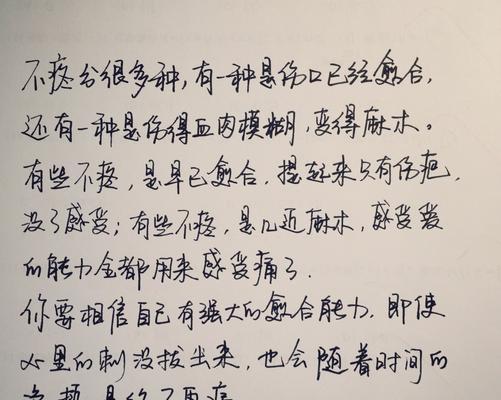 不疼分很多种，有一种是伤口已经愈合，
还有一种是伤得血肉模糊，变得麻木。
有些不疼，是早已愈合，提起来只有伤疤，
没了感受；有些不疼，是几近麻木，感受爱
的能力全都用来感受痛了．
你要相信自己有强大的愈合能力．即使
心里的刺没拔出来，也会随着时间的